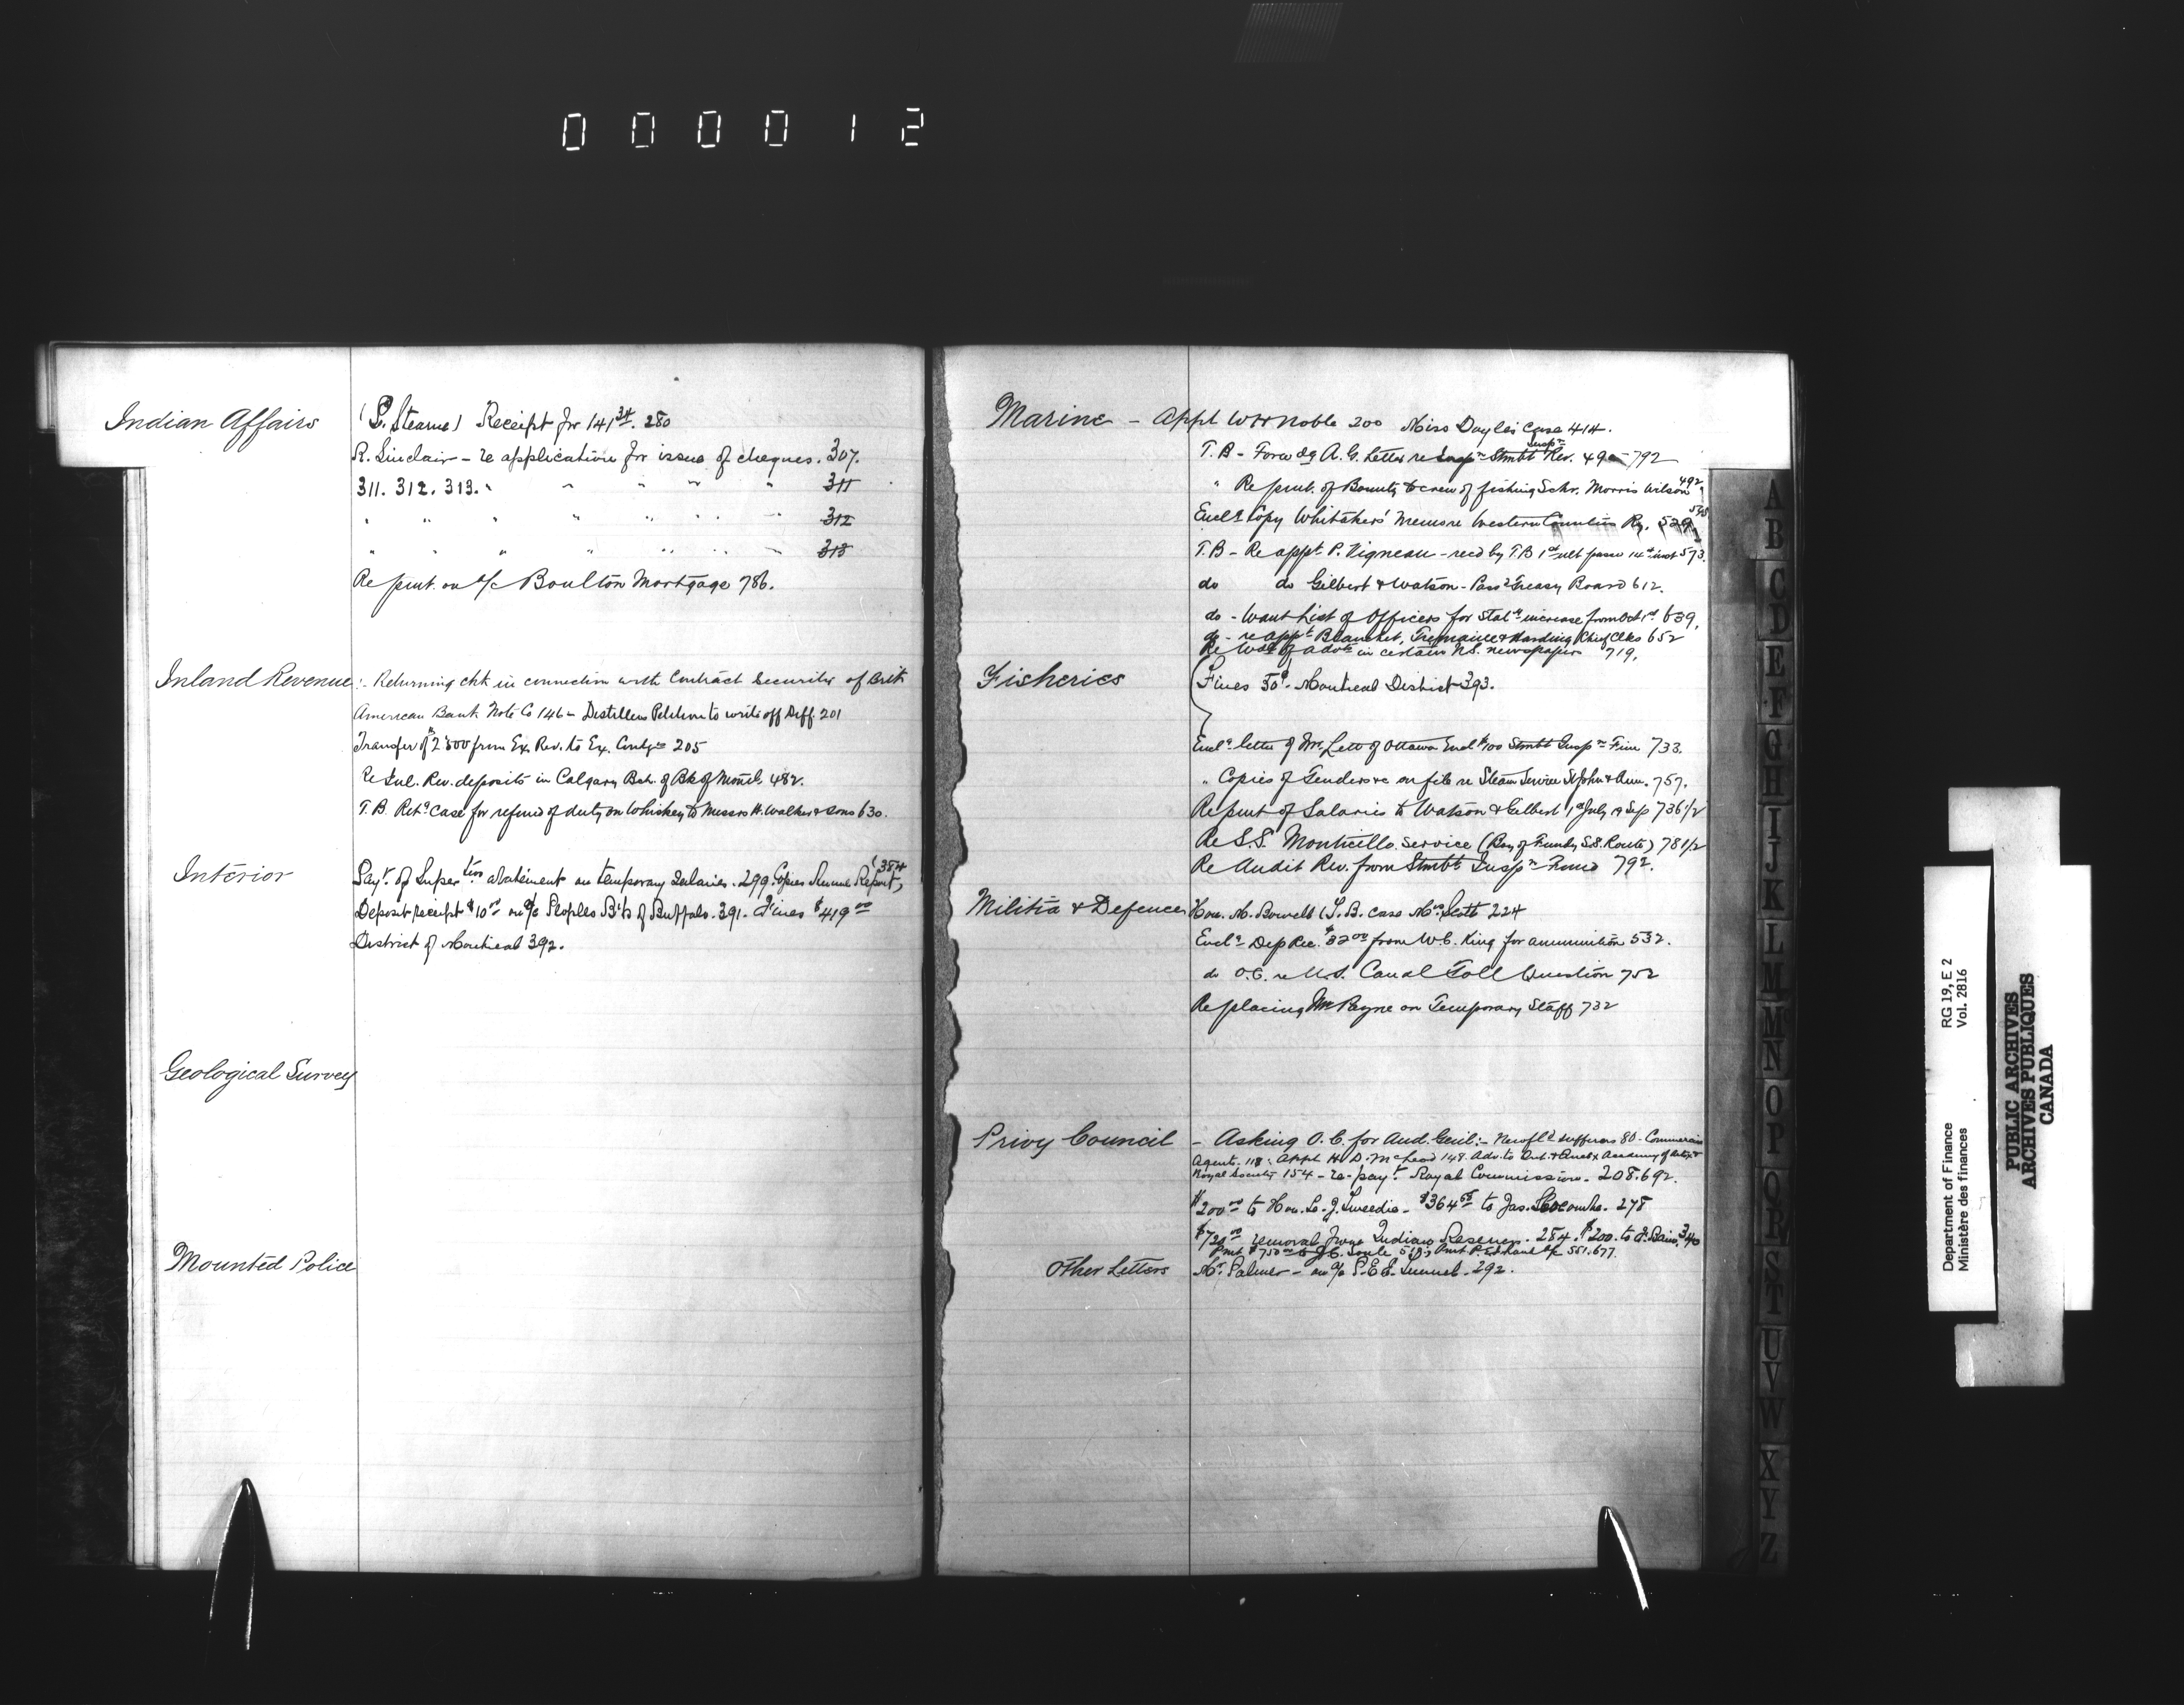 0 0 0 0 1 2
Indian Affairs
(S. Stearns) Receipt for 141 34. 280
R. Sinclair - re application for issue of cheques. 307.
311. 312. 313. " " " " " 311
" " " " " " " " 312
" " " " " " " 313
Re pmt. on a/c Boulton Mortgage 786.
Inland Revenue :- Returning chk in connection with Contract Securities of Brit
American Bank Note Co 146 - Distillers Petition to write off Diff. 201
Transfer of $2500 from Ex. Rev. to Ex. Contgs 205
Re Inl. Rev. deposits in Calgary Bch. of Bk of Montl. 482.
T.B. Retg case for refund of duty on Whiskey to Messrs H. Walker & Sons 630.
Interior
Payt. of Supertion abatement on temporary Salaries. 299. Copies Annual Report, 384
Deposit receipt $10 00 on a/c Peoples B'k of Buffalo. 391. Fines $419 00
District of Montreal 392.
Geological Survey
Mounted Police
Marine - Appt W H Noble 200 Miss Doyle's Case 414.
T.B - Forwdg A.G. Letter re Inspn Stmbt Rev. 49 792
" Re pmt. of Bounty to crew of fishing Schr. Morris Wilson 492
Enclg Copy Whitshers' Memo re Western Counties Ry. 529
T.B - Re appt P. Vigneau - recd by T.B 1st ult passd 14th inst 573.
do do Gilbert & Watson - Passd Treasy Board 612.
do - Want List of Officers for Staty increase from Oct 1st 639.
do - re appt Beauchet, Tremaine & Harding Chief Clks 652
Re of advts in certain N.S. newspapers 719.
Fisheries
Fines 50¢. Montreal District 393.
Enclg letter of Mr. Lett of Ottawa Encl $100 Stmbt Inspn Fine 733.
" Copies of Tenders &c on file re Steam Service St John & Ann. 757.
Re pmt of Salaries to Watson & Gilbert 1st July 19 Sep 736 1/2
Re S.S. Monticello service (Bay of Fundy S.S. Route) 781/2
Re Audit Rev. from Stmbt Inspn Fund 792.
Militia & Defence
Hon. M. Bowell (T.B. case Mrs. Scott 224
Enclg Dep Rec. $32 00 from W.C. King for ammunition 532.
do O.C. re U.S. Canal Toll Question 752
Replacing Mr Payne on Temporary Staff 732
Privy Council - Asking O.C. for Aud. Genl :- Newfld sufferers 80 - Commercial
Agents. 118 : Appt H. D. McLeod 148. Adv. to Academy of Arts &
Royal Society 154 - re - payt. Royal Commission. 208. 692.
$200 00 to Hon. L. J. Tweedie - $364 68 to Jas. Slocombe. 278
$720 00 removal from Indian Reserves. 284. $200. to F. Bain, 340
Pmt $750 00 to J.C. Soule 551. 677.
Other Letters
Mr. Palmer - on a/c P.E.I. Tunnel. 292.
A
B
C
D
E
F
G
H
I
J
K
L
M
M
N
O
P
Q
R
S
T
U
V
W
X
Y
Z
RG 19, E 2
Vol. 2816
Department of Finance
Ministère des finances
PUBLIC ARCHIVES
ARCHIVES PUBLIQUES
CANADA